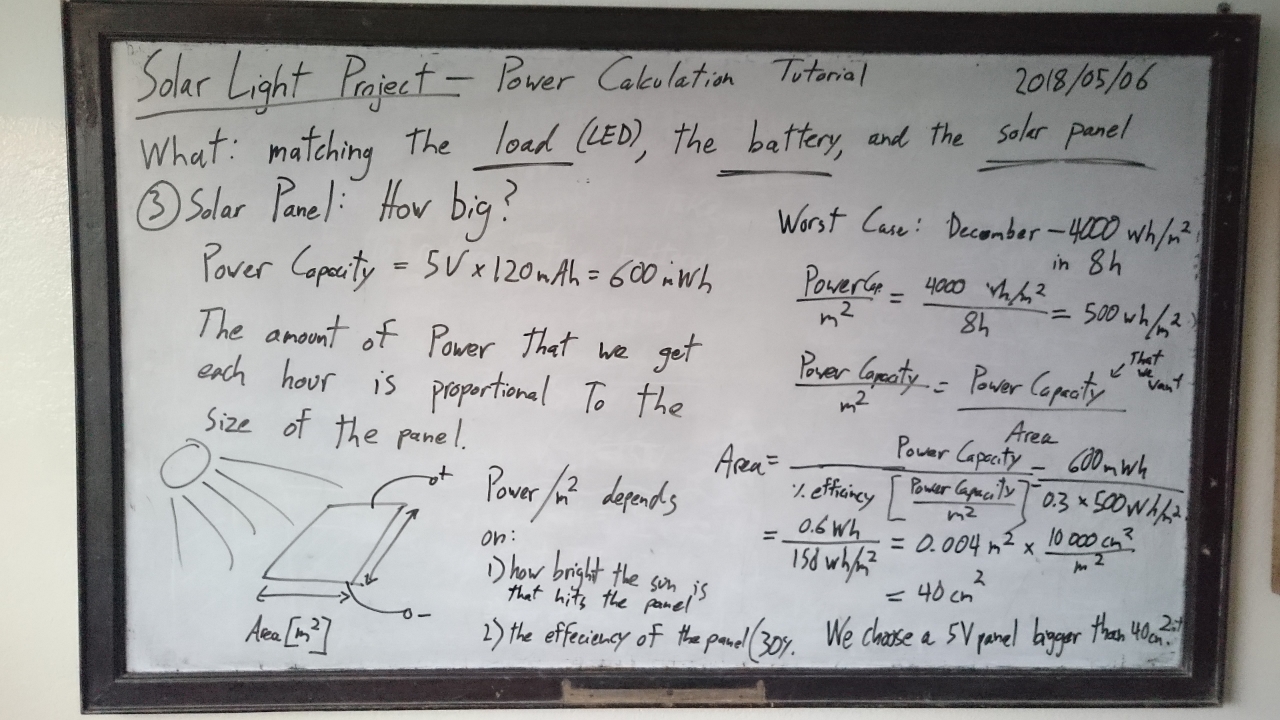 Solar Light Project — Power Calculation Tutorial 2018/05/06
What: matching the load (LED), the battery, and the solar panel
③ Solar Panel: How big?
Power Capacity = 5V x 120mAh = 600mWh
The amount of Power that we get
each hour is proportional To the
size of the panel.
+
-
Area [m²]
Power/m² depends
on:
1) how bright the sun is
that hits the panel
2) the effeciency of the panel (30%.
Worst Case: December — 4000 Wh/m²
in 8h
Power Cap. / m² = 4000 Wh/m² / 8h = 500 wh/m²
Power Capacity / m² = Power Capacity / Area
That
we
want
Area = Power Capacity / % efficiency [Power Capacity / m²] = 600mWh / 0.3 x 500 Wh/m²
= 0.6 Wh / 150 wh/m² = 0.004 m² x 10 000 cm² / m²
= 40 cm²
We choose a 5V panel bigger than 40cm².